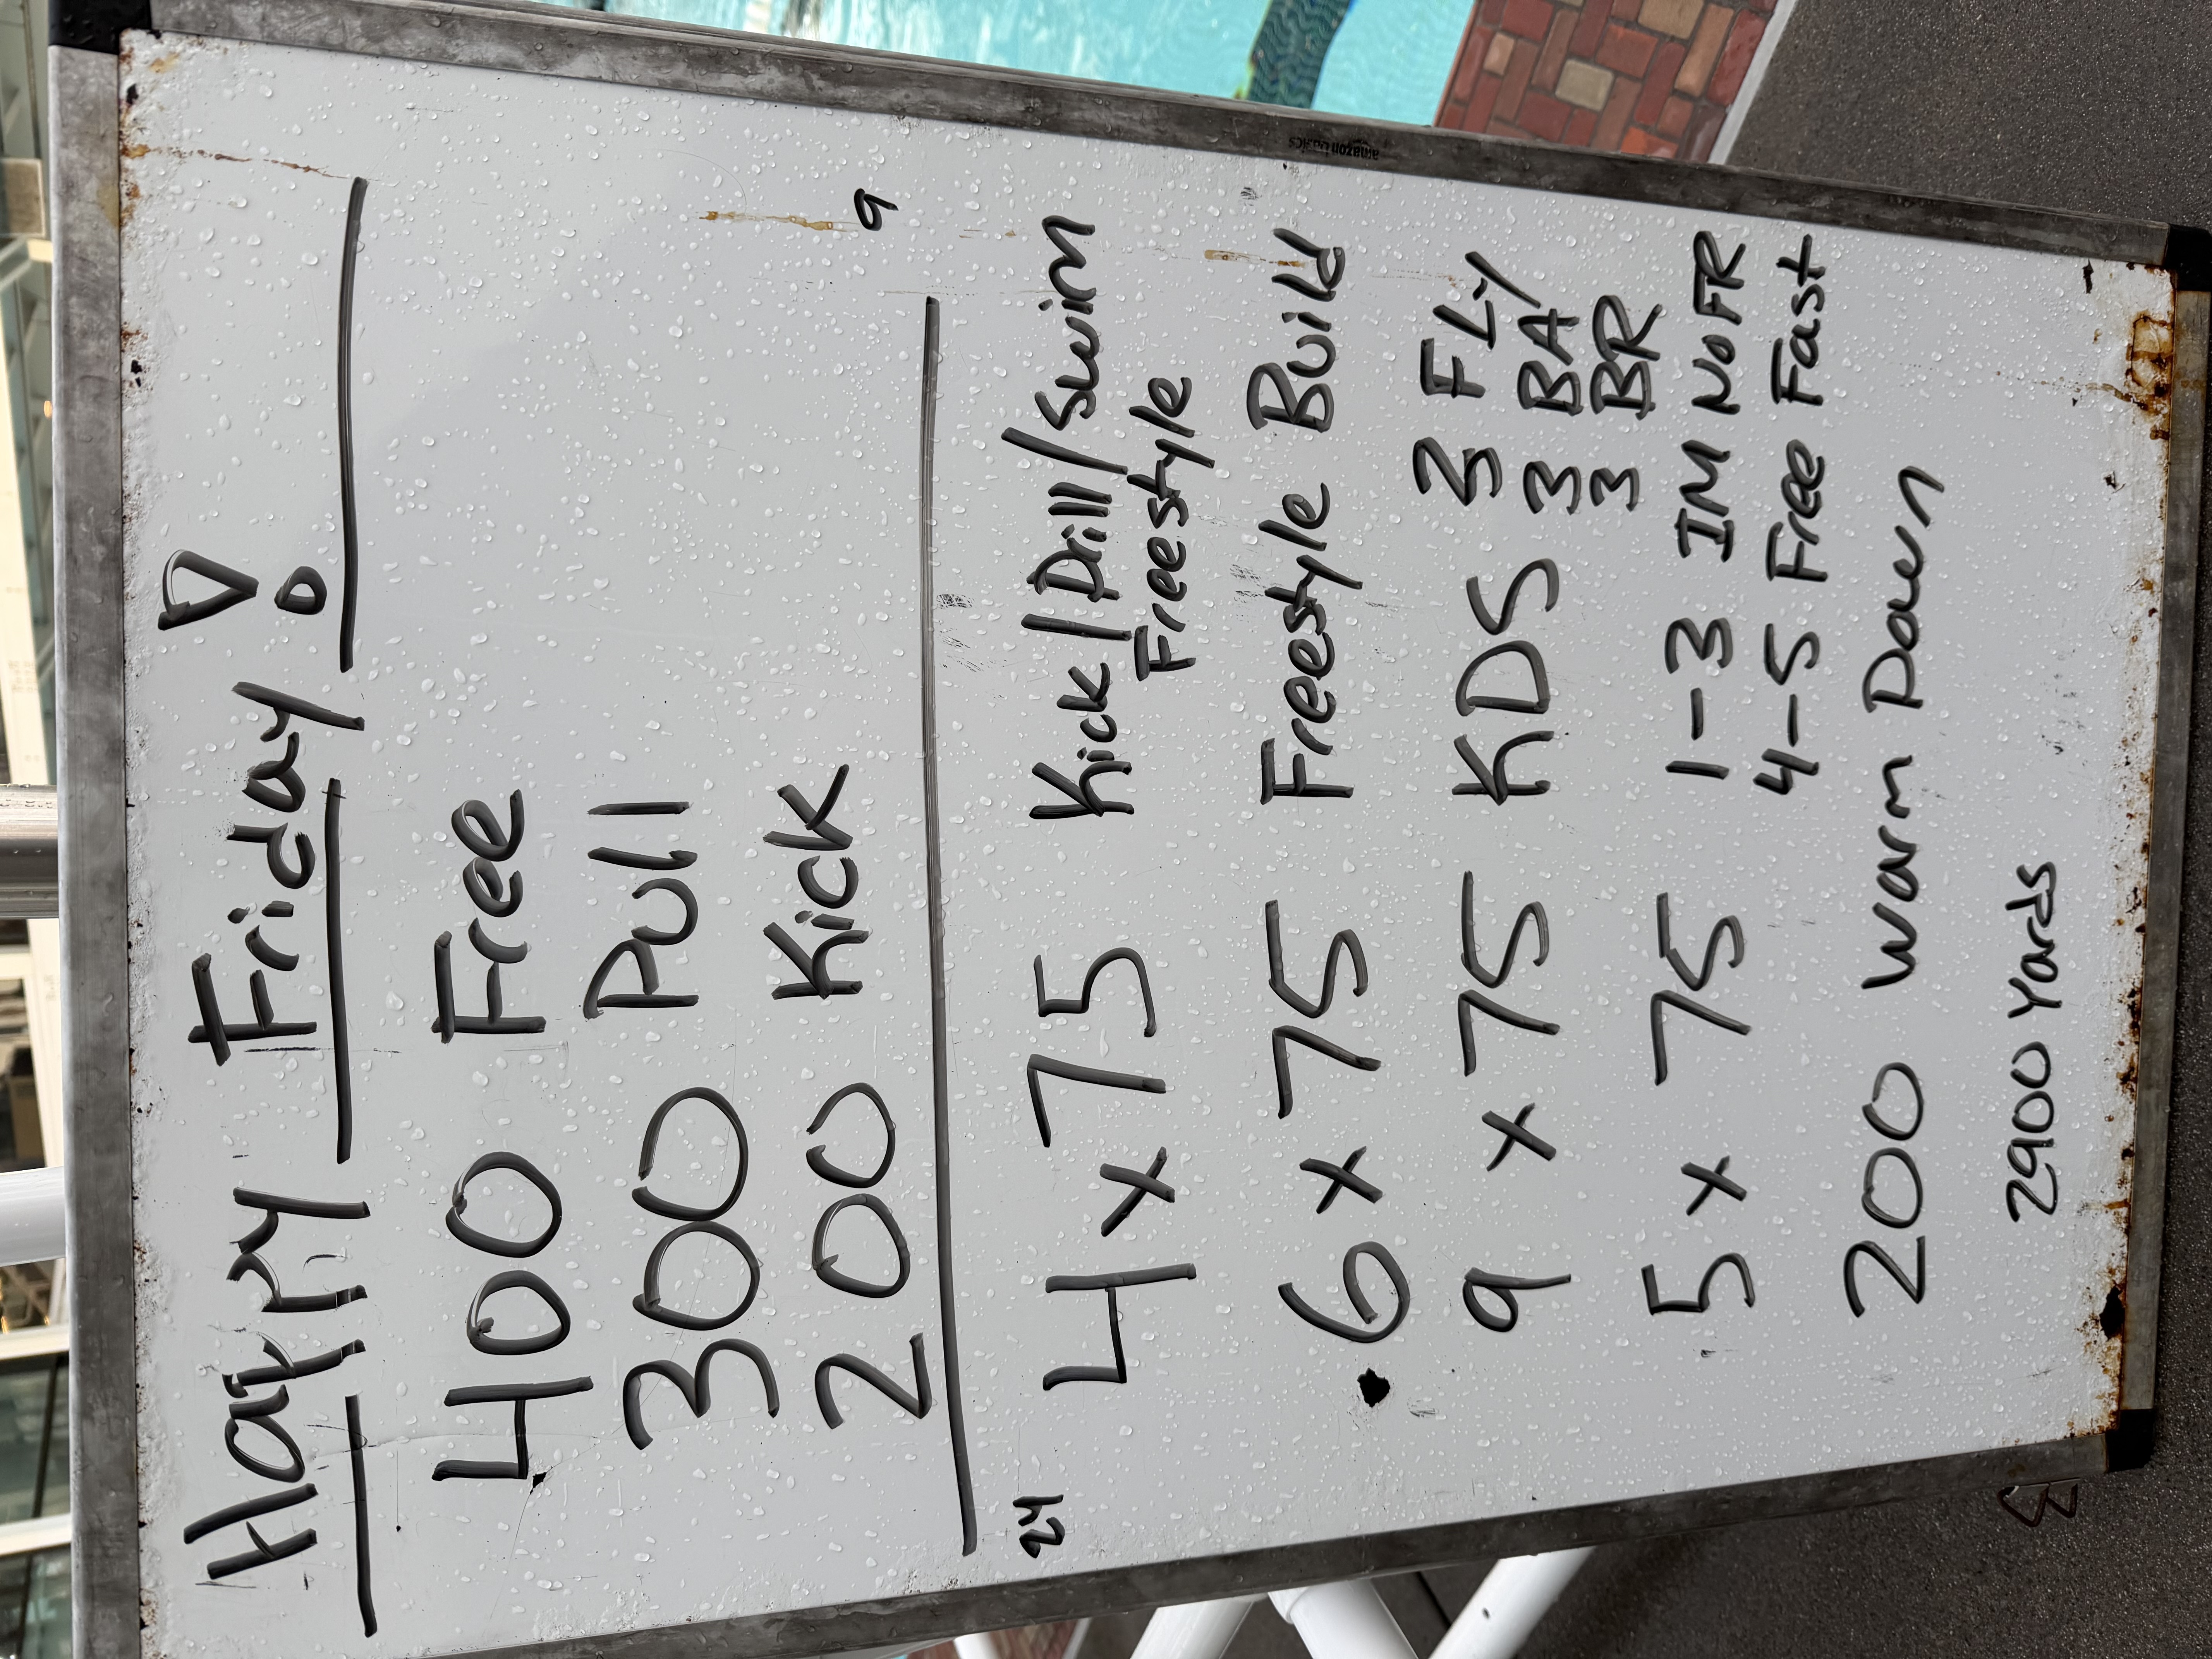 Happy Friday!
400 Free
300 Pull
200 Kick
9
24
4 x 75 Kick/Drill/Swim
Freestyle
6 x 75 Freestyle Build
9 x 75 KDS 3 FLY
3 BA
3 BR
5 x 75 1-3 IM No FR
4-5 Free Fast
200 Warm Down
2900 Yards
amazon basics